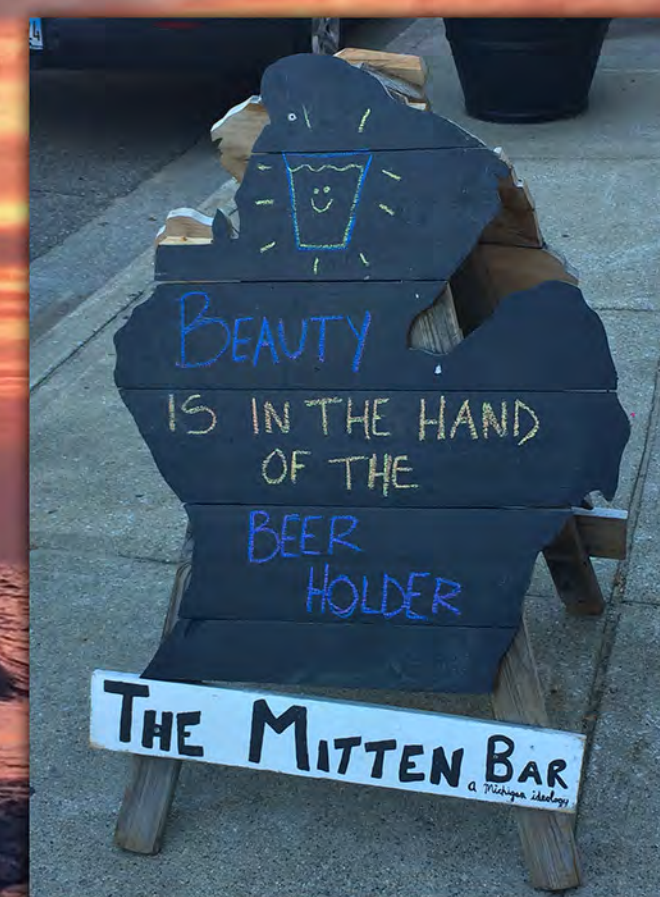 BEAUTY
IS IN THE HAND
OF THE
BEER
HOLDER
THE MITTEN BAR
a Michigan ideology